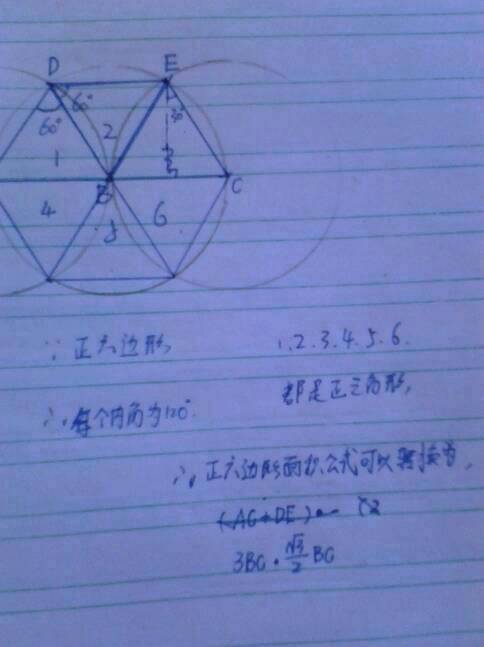 D E
60° 30°
60° 2
1
B C
4 6
5
∵ 正六边形 1.2.3.4.5.6.
都是正三角形,
∴ 每个内角为120°.
∴ 正六边形面积公式可以转换为,
(AC+DE)
3BC·√3/2 BC